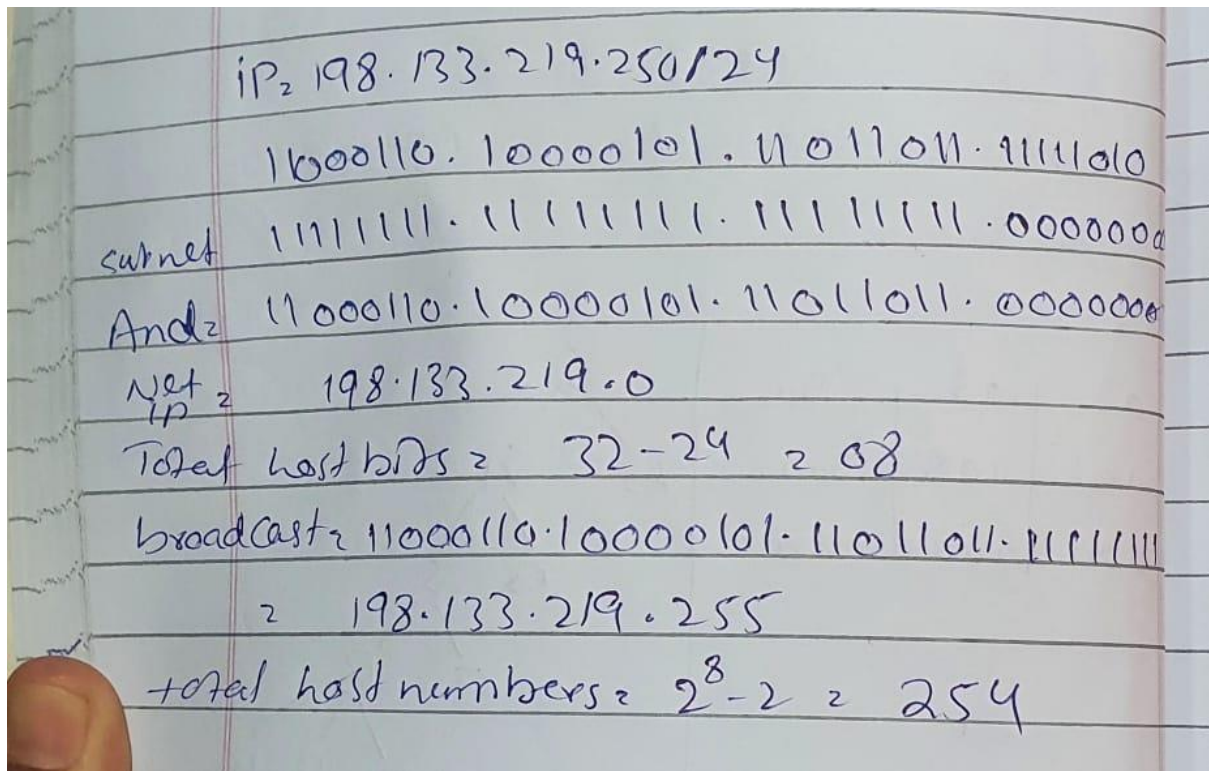 iP= 198.133.219.250/24
11000110.10000101.11011011.11111010
subnet 11111111.11111111.11111111.00000000
And= 11000110.10000101.11011011.00000000
Net ip = 198.133.219.0
Total host bits = 32-24 = 08
broadcast= 11000110.10000101.11011011.11111111
= 198.133.219.255
total host numbers= 2⁸-2 = 254